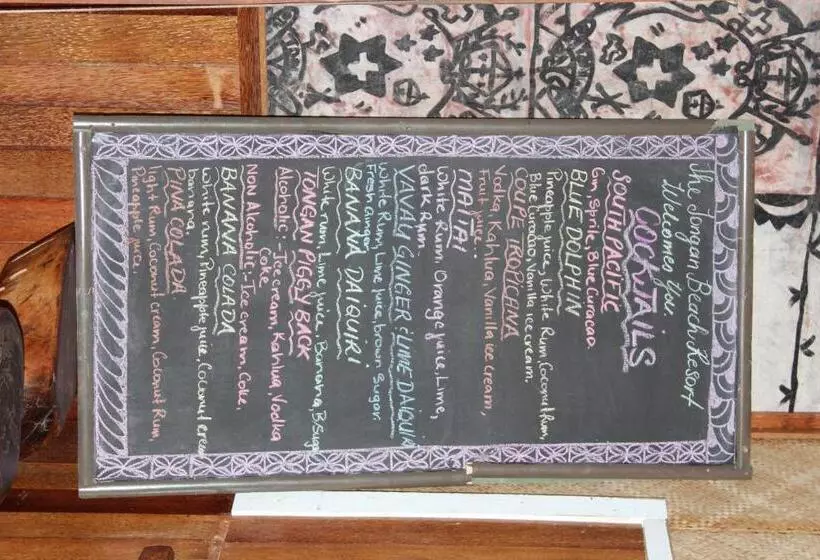 The Tongan Beach Resort
Welcomes you.
COCKTAILS
SOUTH PACIFIC
Gin, Sprite, Blue Curacao.
BLUE DOLPHIN
Pineapple juice, White Rum, Coconut Rum,
Blue Curacao, Vanilla ice cream.
COUPE TROPICANA
Vodka, Kahlua, Vanilla ice cream,
Fruit juice..
MAITAI
White Rum, Orange juice, Lime,
dark Rum.
VAVAU GINGER & LIME DAIQUIRI
White Rum, Lime juice, brown Sugar.
Fresh Ginger
BANANA DAIQUIRI
White rum, Lime juice, Banana, B.Sugar
TONGAN PIGGY BACK
Alcoholic:- Ice cream, Kahlua, Vodka
Coke
NON Alcoholic:- Ice cream, Coke,
BANANA COLADA
white rum, Pineapple juice, Coconut cream
banana.
PINA COLADA
light Rum, Coconut cream, Coconut Rum,
Pineapple juice.